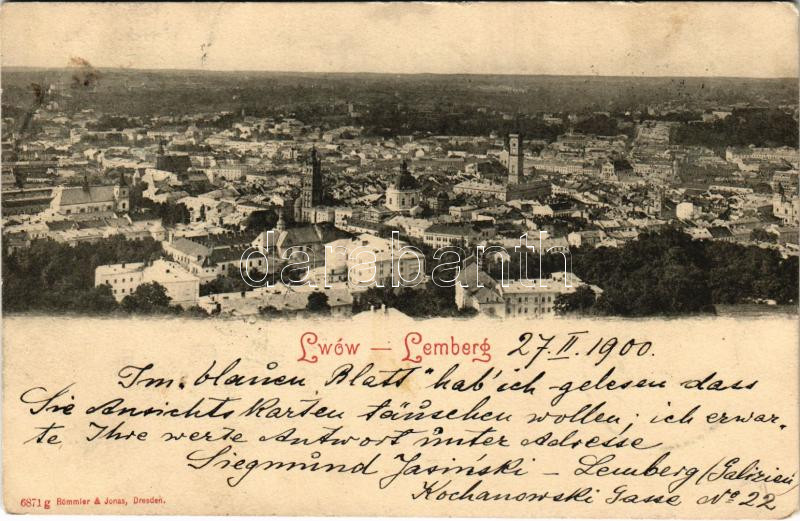 darabanth
Lwów — Lemberg 27. II. 1900.
Im „blauen Blatt" hab' ich gelesen dass
Sie Ansichtskarten täuschen wollen; ich erwar-
te Ihre werte Antwort unter Adresse
Siegmund Jasiński — Lemberg (Galizien)
Kochanowski Gasse No 22
6871 g Römmler & Jonas, Dresden.